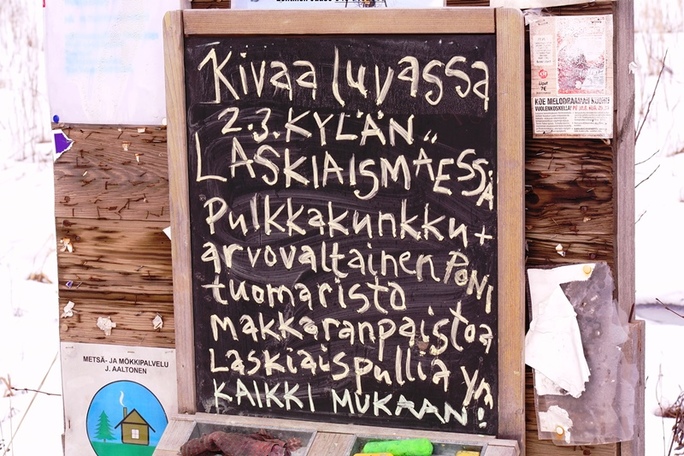 Kivaa luvassa
2.3. KYLÄN
LASKIAISMÄESSÄ
Pulkkakunkku +
arvovaltainen PONI
tuomaristo
makkaranpaistoa
Laskiaispullia ym
KAIKKI MUKAAN!
METSÄ- JA MÖKKIPALVELU
J. AALTONEN
KOE MELODRAAMAN